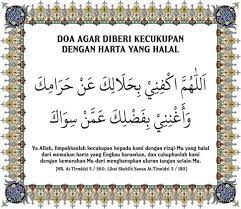 DOA AGAR DIBERI KECUKUPAN
DENGAN HARTA YANG HALAL
اَللّٰهُمَّ اكْفِنِيْ بِحَلَالِكَ عَنْ حَرَامِكَ
وَأَغْنِنِيْ بِفَضْلِكَ عَمَّنْ سِوَاكَ
Ya Allah, limpahkanlah kecukupan kepada kami dengan rizqi-Mu yang halal
dari memakan harta yang Engkau haramkan, dan cukupkanlah kami
dengan kemurahan-Mu dari mengharapkan uluran tangan selain-Mu.
[HR. At-Tirmidzi 5 / 560. Lihat Shahih Sunan At-Tirmidzi 3 / 180]